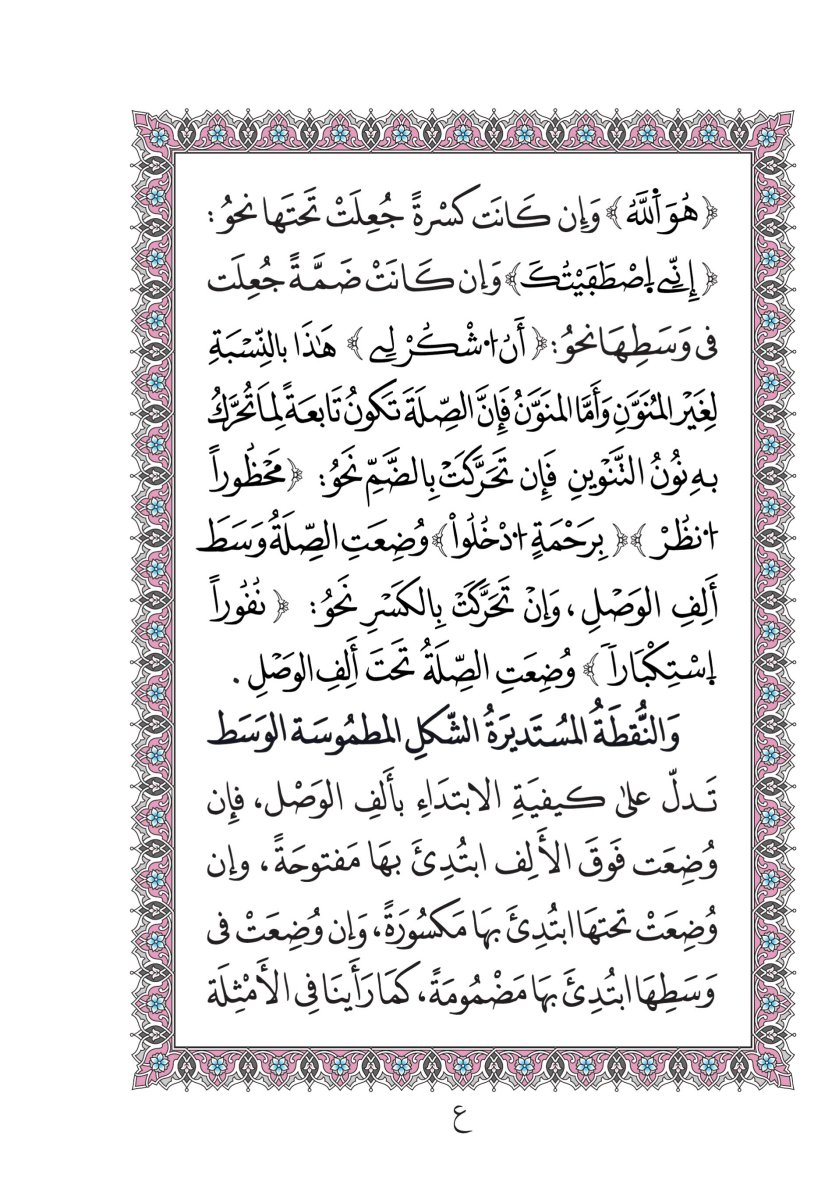 ﴿ هُوَ ٱللَّهُ ﴾ وَإِن كَانَت كَسْرةً جُعِلَتْ تَحتَها نحوُ :
﴿ إِنِّے اِ۪صْطَفَيْتُكَ ﴾ وَإن كَانَتْ ضَمَّةً جُعِلَت
فى وَسَطِهَا نحوُ : ﴿ أَنُ ا۟شْكُرْ لِے ﴾ هَٰذَا بالنِّسْبَةِ
لِغَيْرِ المُنَوَّنِ وَأَمَّا المنَوَّنُ فَإِنَّ الصِّلَةَ تَكونُ تَابعَةً لِمَا تُحَرَّكُ
بهِ نُونُ التَّنْوِينِ فَإِن تَحَرَّكَتْ بِالضَّمِّ نَحوُ : ﴿ مَحْظُوراً
ا۟نظُرْ ﴾ ﴿ بِرَحْمَةٍ ا۟دْخُلُواْ ﴾ وُضِعَتِ الصِّلَةُ وَسَطَ
أَلِفِ الوَصْلِ ، وَإنْ تَحَرَّكَتْ بِالكَسْرِ نَحوُ : ﴿ نُفُوراً
اِ۪سْتِكْبَاراً ﴾ وُضِعَتِ الصِّلَةُ تَحتَ أَلِفِ الوَصْلِ .
وَالنُّقطَةُ المُسْتَديرَةُ الشَّكلِ المطمُوسَة الوَسَط
تَـدلّ علىٰ كـيفيَةِ الابتدَاءِ بأَلفِ الوَصْل، فإن
وُضِعَت فَوقَ الأَلِف ابتُدِئَ بهَا مَفتوحَةً ، وإن
وُضِعَتْ تحتهَا ابتُدِئَ بهَا مَكسُورَةً، وَإن وُضِعَتْ فى
وَسَطِهَا ابتُدِئَ بهَا مَضْمُومَةً، كمَا رَأَينَا فِى الأَمْثِلَة
ع